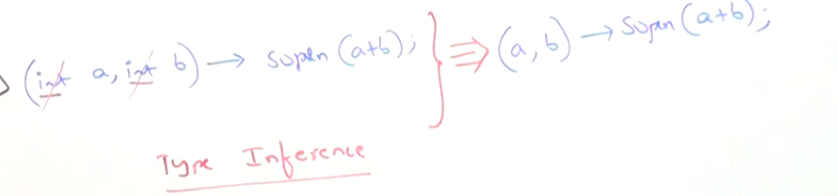 (int a, int b) → sopln (a+b); } ⇒ (a, b) → sopln (a+b);
Type Inference